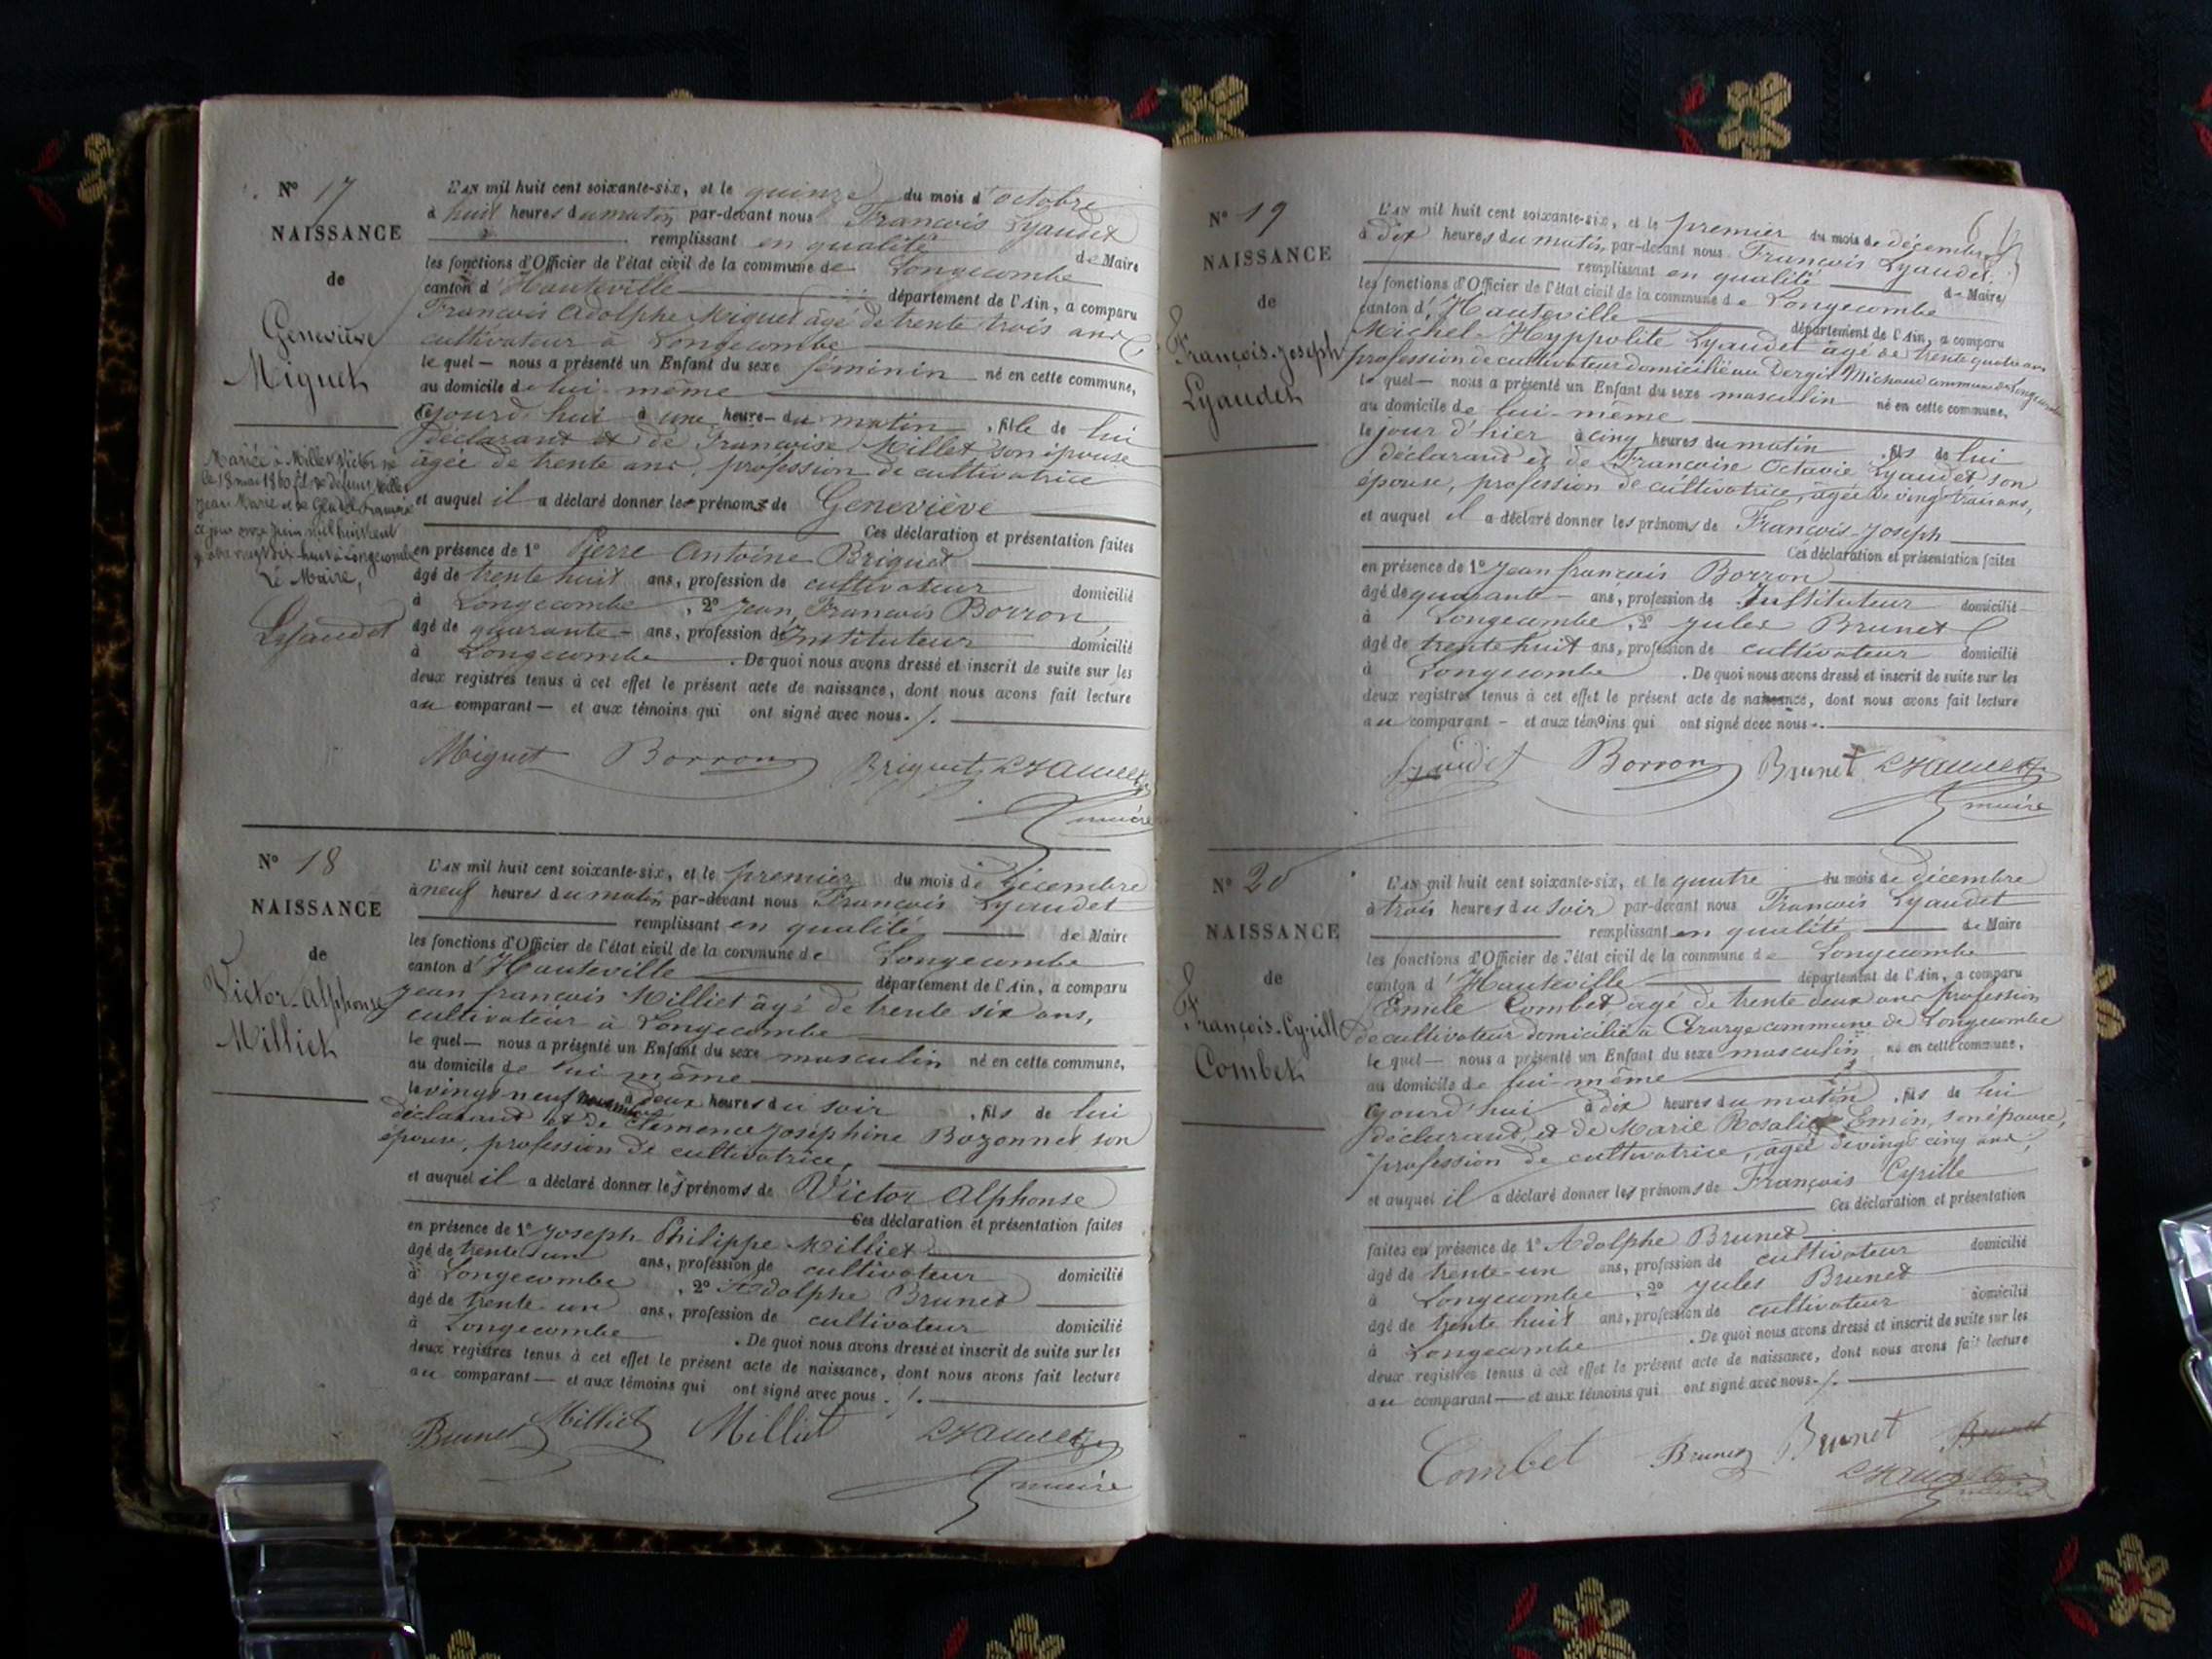 N° 17
NAISSANCE
de
Geneviève
Miguet
Mariée à Millet Victor
le 18 mai 1860 fil de defunt Millet
Jean Marie et de
ce jour onze juin mil huit cent
quatre vingt dix huit à Longecombe
Le Maire,
Lyaudet
L'AN mil huit cent soixante-six, et le quinze du mois d'octobre
à huit heures du matin, par-devant nous François Lyaudet
remplissant en qualité de Maire
les fonctions d'Officier de l'état civil de la commune de Longecombe
canton d'Hauteville département de l'Ain, a comparu
François Adolphe Miguet âgé de trente trois ans
cultivateur à Longecombe
le quel — nous a présenté un Enfant du sexe féminin né en cette commune,
au domicile de lui-même
cejourd'hui à une heure du matin, fille de lui
déclarant et de Françoise Millet son épouse
âgée de trente ans, profession de cultivatrice
et auquel il a déclaré donner les prénoms de Geneviève
Ces déclaration et présentation faites
en présence de 1° Pierre Antoine Briguet
âgé de trente huit ans, profession de cultivateur domicilié
à Longecombe, 2° Jean François Borron,
âgé de quarante — ans, profession de Instituteur domicilié
à Longecombe . De quoi nous avons dressé et inscrit de suite sur les
deux registres tenus à cet effet le présent acte de naissance, dont nous avons fait lecture
au comparant — et aux témoins qui ont signé avec nous ./.
Miguet Borron Briguet Lyaudet
maire
N° 18
NAISSANCE
de
Victor-Alphonse
Milliet
L'AN mil huit cent soixante-six, et le premier du mois de décembre
à neuf heures du matin, par-devant nous François Lyaudet
remplissant en qualité de Maire
les fonctions d'Officier de l'état civil de la commune de Longecombe
canton d'Hauteville département de l'Ain, a comparu
Jean François Milliet âgé de trente six ans,
cultivateur à Longecombe
le quel — nous a présenté un Enfant du sexe masculin né en cette commune,
au domicile de lui même
le vingt neuf novembre à deux heures du soir, fils de lui
déclarant et de Clémence Joséphine Bozonnet son
épouse, profession de cultivatrice,
et auquel il a déclaré donner les prénoms de Victor Alphonse
Ces déclaration et présentation faites
en présence de 1° Joseph Philippe Milliet
âgé de trente un ans, profession de cultivateur domicilié
à Longecombe, 2° Adolphe Brunet
âgé de trente-un ans, profession de cultivateur domicilié
à Longecombe . De quoi nous avons dressé et inscrit de suite sur les
deux registres tenus à cet effet le présent acte de naissance, dont nous avons fait lecture
au comparant — et aux témoins qui ont signé avec nous ./.
Brunet Milliet Milliet Lyaudet
maire
N° 19
NAISSANCE
de
François-Joseph
Lyaudet
L'AN mil huit cent soixante-six, et le premier du mois de décembre
à dix heures du matin, par-devant nous François Lyaudet
remplissant en qualité de Maire
les fonctions d'Officier de l'état civil de la commune de Longecombe
canton d'Hauteville département de l'Ain, a comparu
Michel Hyppolite Lyaudet âgé de trente quatre ans
profession de cultivateur domicilié au Dergit Michaud commune de Longecombe
le quel — nous a présenté un Enfant du sexe masculin né en cette commune,
au domicile de lui-même
le jour d'hier à cinq heures du matin, fils de lui
déclarant et de Françoise Octavie Lyaudet son
épouse, profession de cultivatrice, âgée de vingt trois ans,
et auquel il a déclaré donner les prénoms de François-Joseph
Ces déclaration et présentation faites
en présence de 1° Jean françois Borron
âgé de quarante — ans, profession de Instituteur domicilié
à Longecombe, 2° Jules Brunet
âgé de trente huit ans, profession de cultivateur domicilié
à Longecombe . De quoi nous avons dressé et inscrit de suite sur les
deux registres tenus à cet effet le présent acte de naissance, dont nous avons fait lecture
au comparant — et aux témoins qui ont signé avec nous ..
Lyaudet Borron Brunet Lyaudet
maire
N° 20
NAISSANCE
de
François-Cyrille
Combet
L'AN mil huit cent soixante-six, et le quatre du mois de décembre
à trois heures du soir par-devant nous François Lyaudet
remplissant en qualité de Maire
les fonctions d'Officier de l'état civil de la commune de Longecombe
canton d'Hauteville département de l'Ain, a comparu
Emile Combet âgé de trente deux ans profession
de cultivateur domicilié à commune de Longecombe
le quel — nous a présenté un Enfant du sexe masculin, né en cette commune,
au domicile de lui-même
cejourd'hui à dix heures du matin, fils de lui
déclarant, et de Marie Rosalie Emin, son épouse,
profession de cultivatrice, âgée de vingt cinq ans,
et auquel il a déclaré donner les prénoms de François Cyrille
Ces déclaration et présentation
faites en présence de 1° Adolphe Brunet
âgé de trente-un ans, profession de cultivateur domicilié
à Longecombe, 2° Jules Brunet
âgé de trente huit ans, profession de cultivateur domicilié
à Longecombe . De quoi nous avons dressé et inscrit de suite sur les
deux registres tenus à cet effet le présent acte de naissance, dont nous avons fait lecture
au comparant — et aux témoins qui ont signé avec nous ./.
Combet Brunet Brunet Brunet
Lyaudet
maire